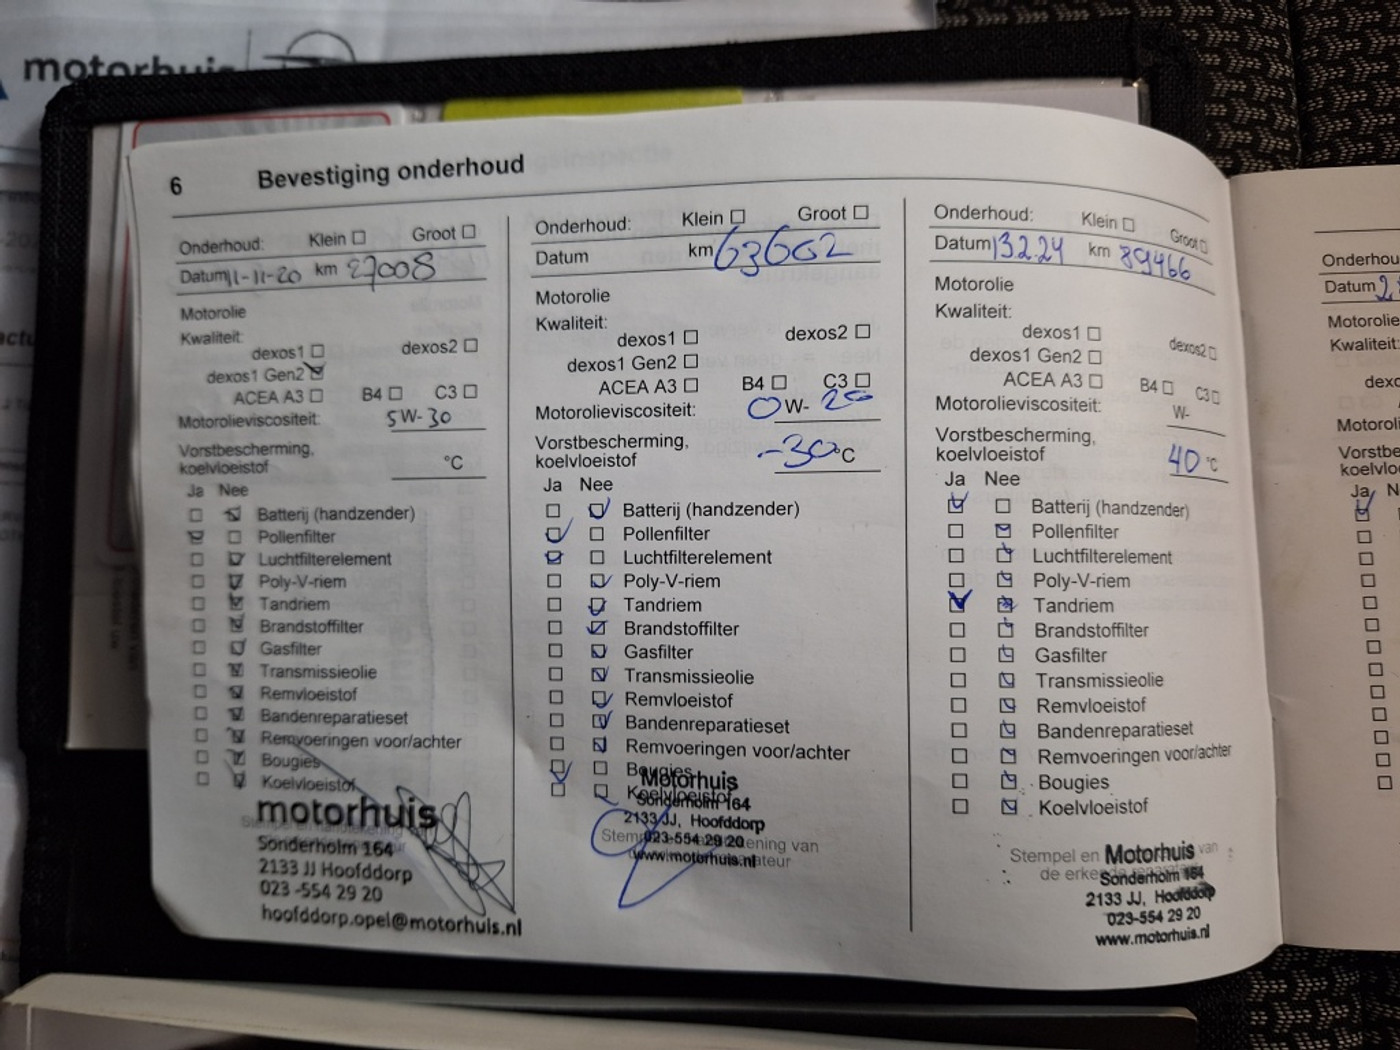 motorhuis
6 Bevestiging onderhoud
Onderhoud: Klein Groot
Datum 11-11-20 km 27008
Motorolie
Kwaliteit:
dexos1 dexos2
dexos1 Gen2
ACEA A3 B4 C3
Motorolieviscositeit: 5W-30
Vorstbescherming,
koelvloeistof °C
Ja Nee
Batterij (handzender)
Pollenfilter
Luchtfilterelement
Poly-V-riem
Tandriem
Brandstoffilter
Gasfilter
Transmissieolie
Remvloeistof
Bandenreparatieset
Remvoeringen voor/achter
Bougies
Koelvloeistof
motorhuis
Sonderholm 164
2133 JJ Hoofddorp
023 -554 29 20
hoofddorp.opel@motorhuis.nl
Onderhoud: Klein Groot
Datum km 63602
Motorolie
Kwaliteit:
dexos1 dexos2
dexos1 Gen2
ACEA A3 B4 C3
Motorolieviscositeit: 0W-20
Vorstbescherming,
koelvloeistof -30°C
Ja Nee
Batterij (handzender)
Pollenfilter
Luchtfilterelement
Poly-V-riem
Tandriem
Brandstoffilter
Gasfilter
Transmissieolie
Remvloeistof
Bandenreparatieset
Remvoeringen voor/achter
Bougies
Koelvloeistof
Motorhuis
Sonderholm 164
2133 JJ, Hoofddorp
023-554 29 20
www.motorhuis.nl
Onderhoud: Klein Groot
Datum 13.2.24 km 89466
Motorolie
Kwaliteit:
dexos1 dexos2
dexos1 Gen2
ACEA A3 B4 C3
Motorolieviscositeit: W-
Vorstbescherming,
koelvloeistof 40 °C
Ja Nee
Batterij (handzender)
Pollenfilter
Luchtfilterelement
Poly-V-riem
Tandriem
Brandstoffilter
Gasfilter
Transmissieolie
Remvloeistof
Bandenreparatieset
Remvoeringen voor/achter
Bougies
Koelvloeistof
Stempel en Motorhuis van
de erke
Sonderholm 164
2133 JJ, Hoofddorp
023-554 29 20
www.motorhuis.nl
Onderhou
Datum
Motorolie
Kwaliteit:
dexo
Motoroli
Vorstbe
koelvlo
Ja N